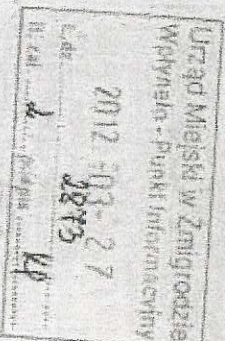 Urząd Miejski w Żmigrodzie
Wpłynęło - Punkt Informacyjny
2012 -03- 27
L.dz. 2873
Il. zał. 2 podpis